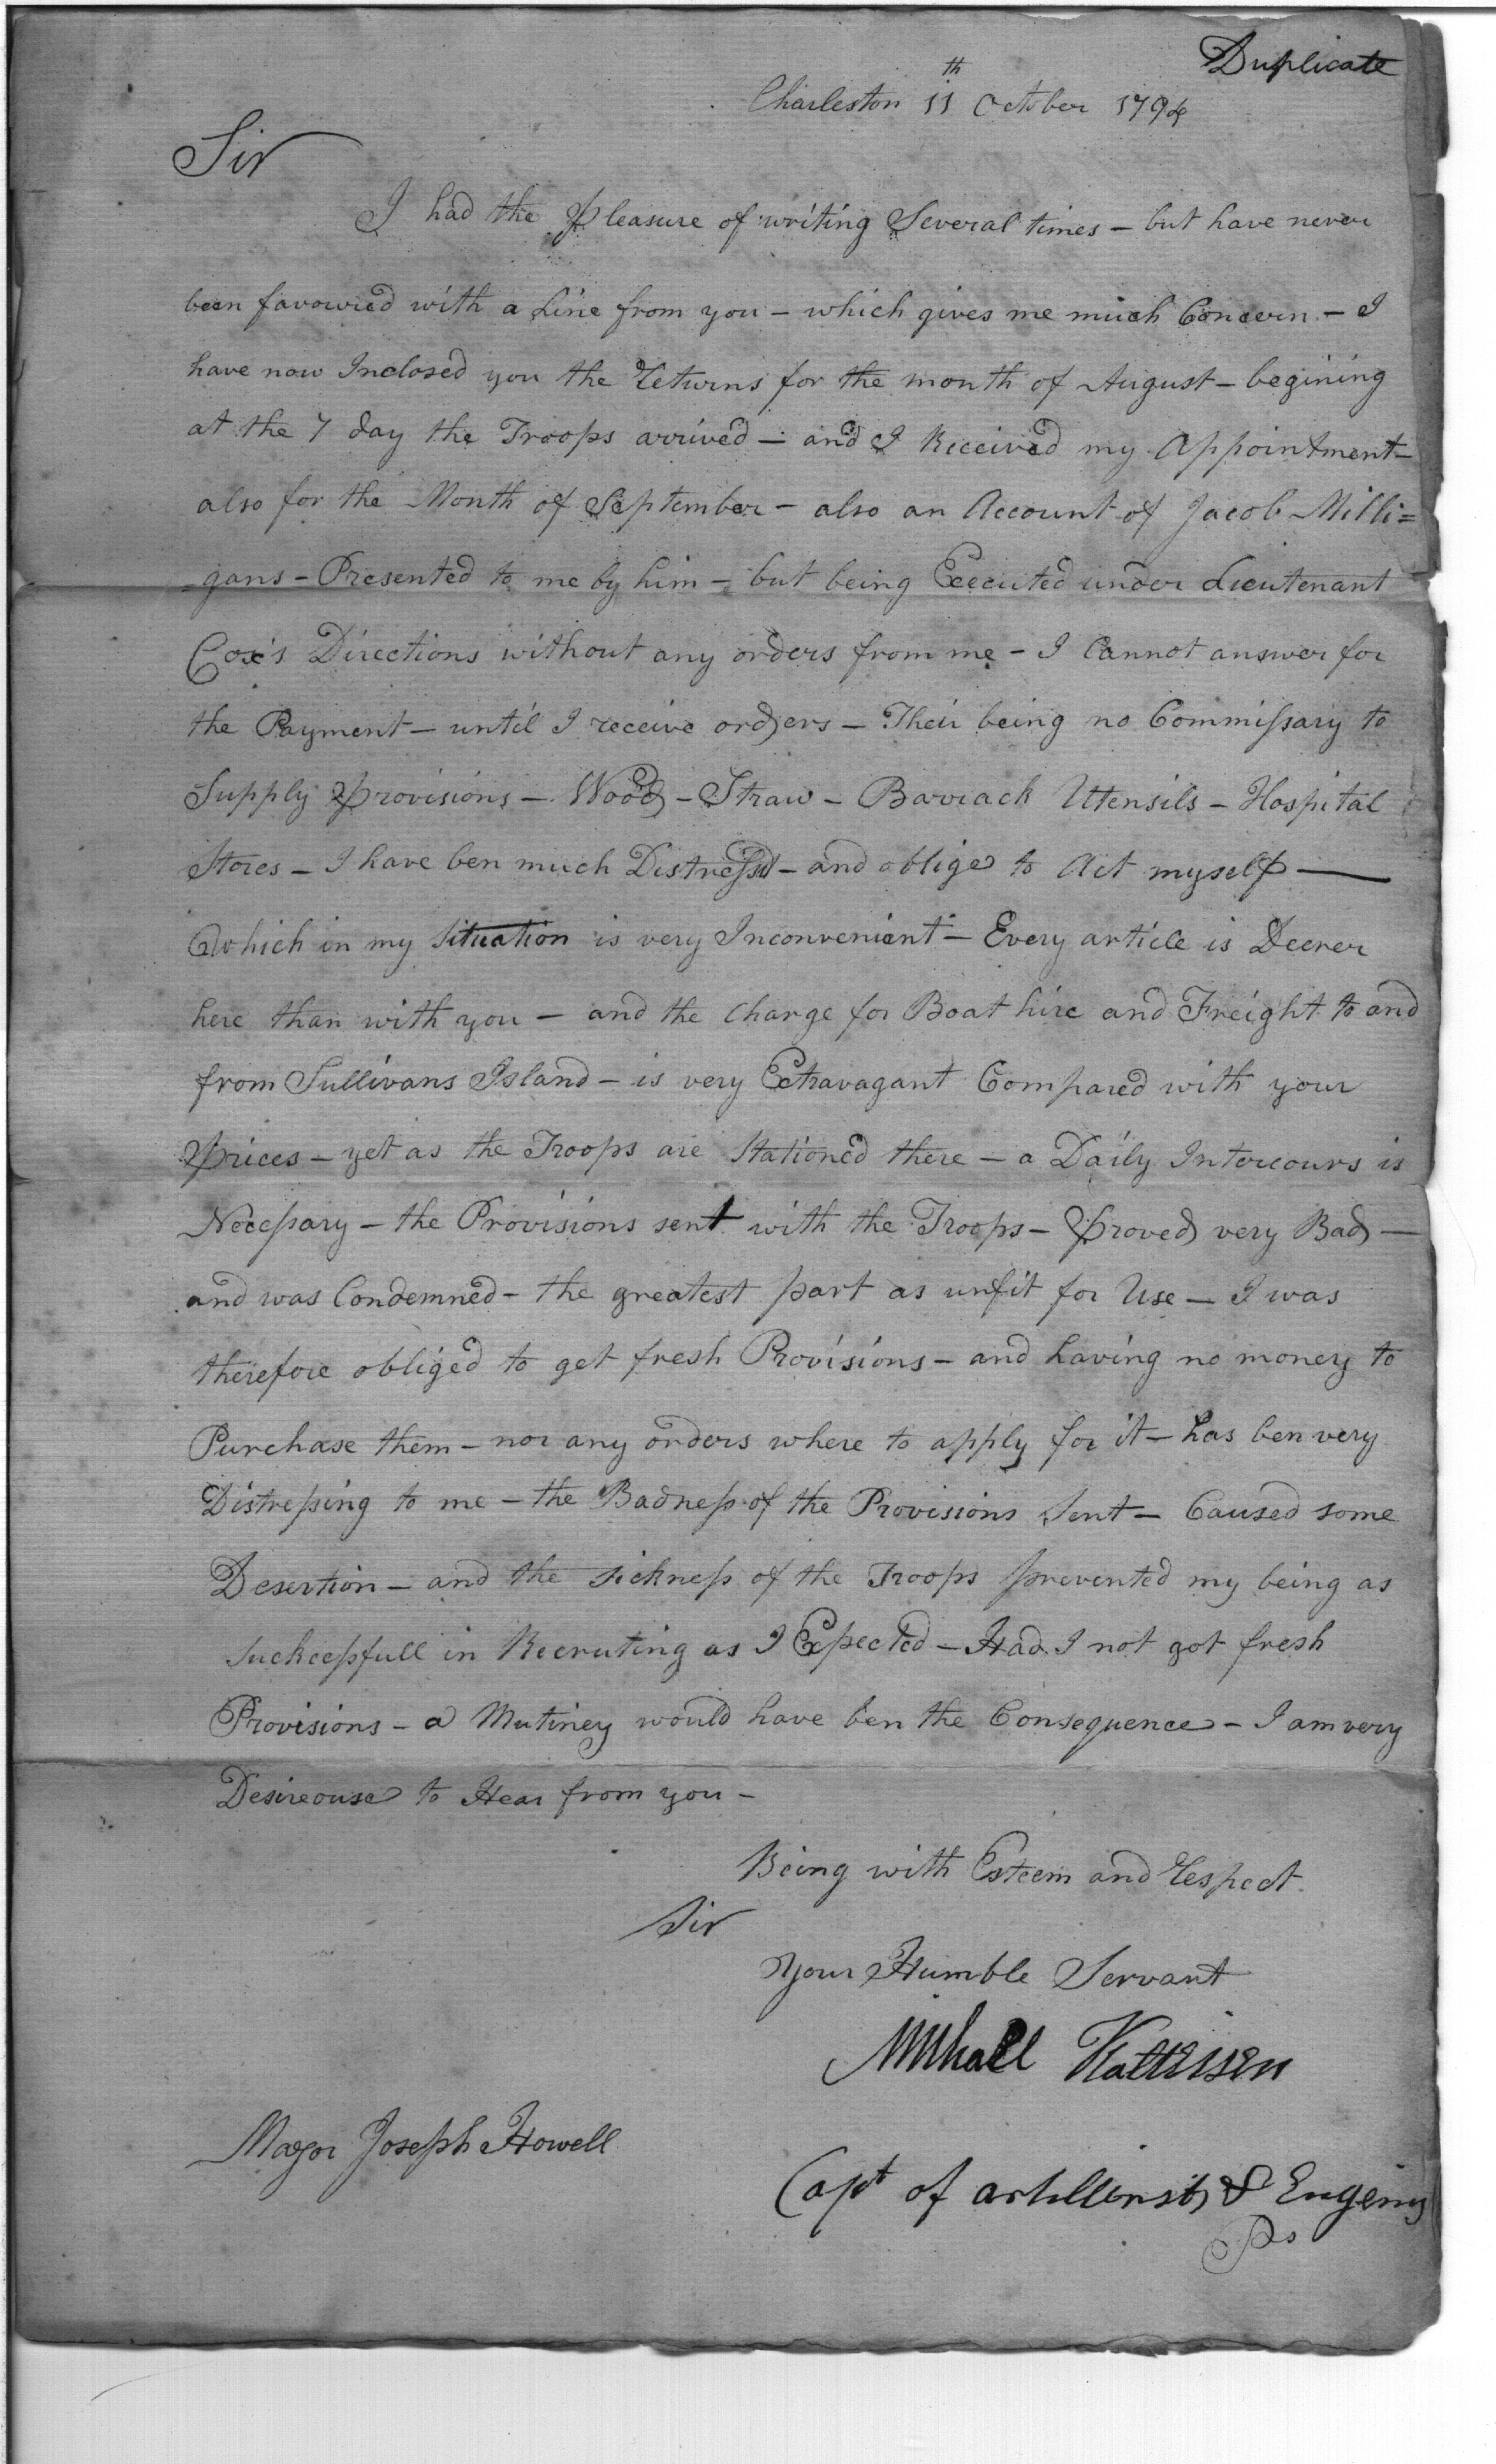 Duplicate
Charleston 11th October 1794
Sir
I had the Pleasure of writing Several times – but have never
been favoured with a Line from you – which gives me much Concern – I
have now Inclosed you the Returns for the month of August – begining
at the 7 day the Troops arrived – and I Received my Appointment –
also for the Month of September – also an Account of Jacob Milli=
=gans – Presented to me by him – but being Executed under Lieutenant
Cox's Directions without any orders from me – I Cannot answer for
the Payment – until I receive orders – Their being no Commissary to
Supply Provisions – Wood – Straw – Barrack Utensils – Hospital
Stores – I have ben much Distressd – and oblige to Act myself —
Which in my Situation is very Inconvenient – Every article is Deerer
here than with you – and the Charge for Boat hire and Freight to and
from Sullivans Island – is very Extravagant Compared with your
Prices – yet as the Troops are Stationed there – a Daily Intercours is
Necessary – the Provisions sent with the Troops – Proved very Bad —
and was Condemned – the greatest part as unfit for Use – I was
therefore obliged to get fresh Provisions – and having no money to
Purchase them – nor any orders where to apply for it – has ben very
Distressing to me – the Badness of the Provisions Sent – Caused some
Desertion – and the sickness of the Troops prevented my being as
suckcessfull in Recruting as I Expected – Had I not got fresh
Provisions – a Mutiney would have ben the Consequence – I am very
Desireouse to Hear from you –
Being with Esteem and Respect
Sir
Your Humble Servant
Mihael Kalteisen
Major Joseph Howell
Capt of &
Ps